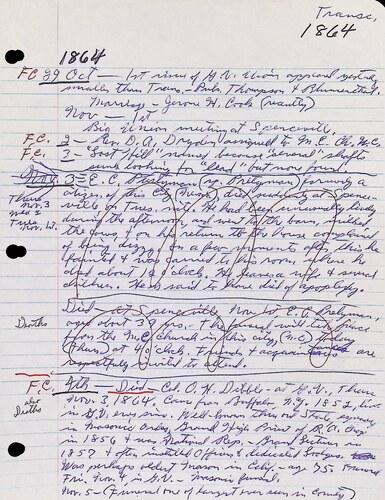 Transc.
1864
1864
F.C. 29 Oct — 1st issue of G.V. Union appeared yesterday
smaller than Trans. — Pubs. Thompson & Blumenthal.
Marriage — Jerome H. Cook (recently)
Nov — 1st
Big Union meeting at Spenceville.
F.C. 2 — Rev. D.A. Dryden assigned to M.E. Ch. N.C.
F.C. 3 — Lost Hill named because "several" shafts
sunk looking for lead but none found
Nov. 3 — E.C. forming a
citizen of this City (N.C.) died at Spence-
ville on Tues. night. He had been unusually lively
Thurs
Nov. 3
was
Tues
Nov. 1st.
during the afternoon, and went to the barn, milked
the cows, & on his return to the house complained
of being dizzy, & in a few moments after this he
fainted & was carried to his room where he
died about 10 o'clock. He leaves a wife & several
children. He is said to have died of apoplexy.
Deaths
Died — at Spenceville, Nov 1st E.C.
aged about 38 yrs. — The funeral will take place
from the M.E. church in this city, (N.C.) today
(Thurs) at 4 o'clock. Friends & acquaintances are
respectfully invited to attend.
F.C.
also
Deaths
4th — Died — Col. O.H. — at G.V., Thurs
Nov. 3, 1864. Came from Buffalo N.Y. 1852, lived
in G.V. ever since. Well-known thru out State, especially
in Masonic Order, Grand High Priest of R.A. Chap
in 1856 & was National Rep. — Grand Lecturer in
1857 & often installed Officers & dedicated Lodges.
Was perhaps oldest Mason in Calif. — age 75. Funeral
Fri. Nov. 4, in G.V. — Masonic funeral.
Nov. 5 — (Funeral one of largest ever seen in county)